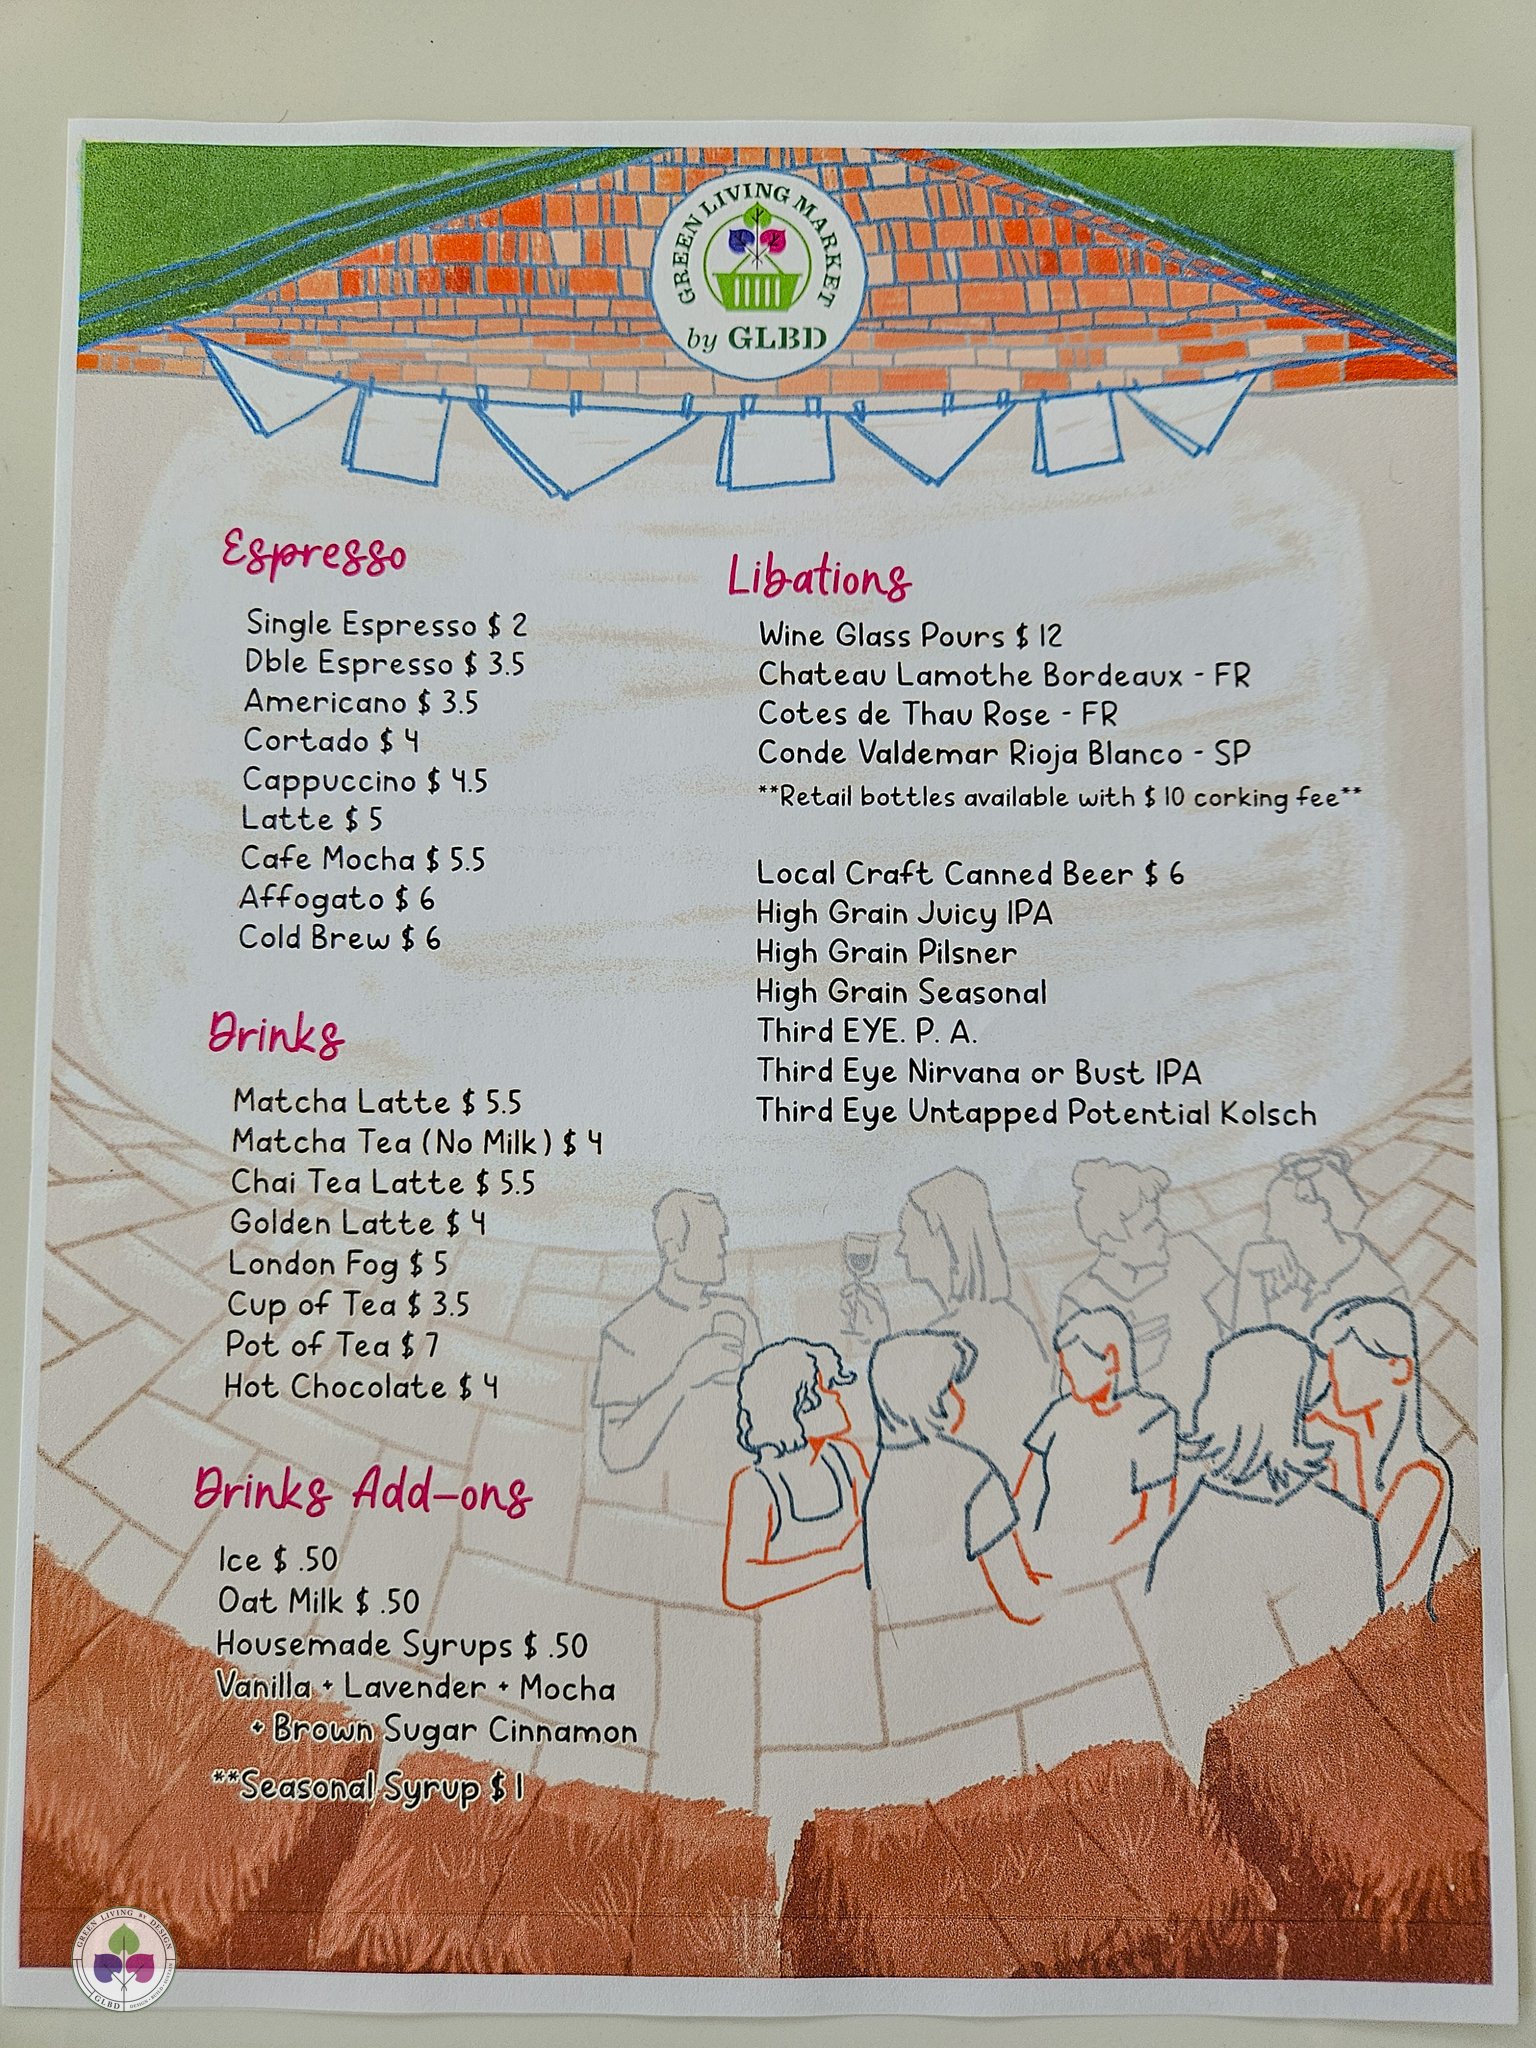 GREEN LIVING MARKET
by GLBD
Espresso
Single Espresso $ 2
Dble Espresso $ 3.5
Americano $ 3.5
Cortado $ 4
Cappuccino $ 4.5
Latte $ 5
Cafe Mocha $ 5.5
Affogato $ 6
Cold Brew $ 6
Drinks
Matcha Latte $ 5.5
Matcha Tea (No Milk) $ 4
Chai Tea Latte $ 5.5
Golden Latte $ 4
London Fog $ 5
Cup of Tea $ 3.5
Pot of Tea $ 7
Hot Chocolate $ 4
Drinks Add-ons
Ice $ .50
Oat Milk $ .50
Housemade Syrups $ .50
Vanilla + Lavender + Mocha
+ Brown Sugar Cinnamon
**Seasonal Syrup $ 1
Libations
Wine Glass Pours $ 12
Chateau Lamothe Bordeaux - FR
Cotes de Thau Rose - FR
Conde Valdemar Rioja Blanco - SP
**Retail bottles available with $ 10 corking fee**
Local Craft Canned Beer $ 6
High Grain Juicy IPA
High Grain Pilsner
High Grain Seasonal
Third EYE. P. A.
Third Eye Nirvana or Bust IPA
Third Eye Untapped Potential Kolsch
GREEN LIVING BY DESIGN
GLBD